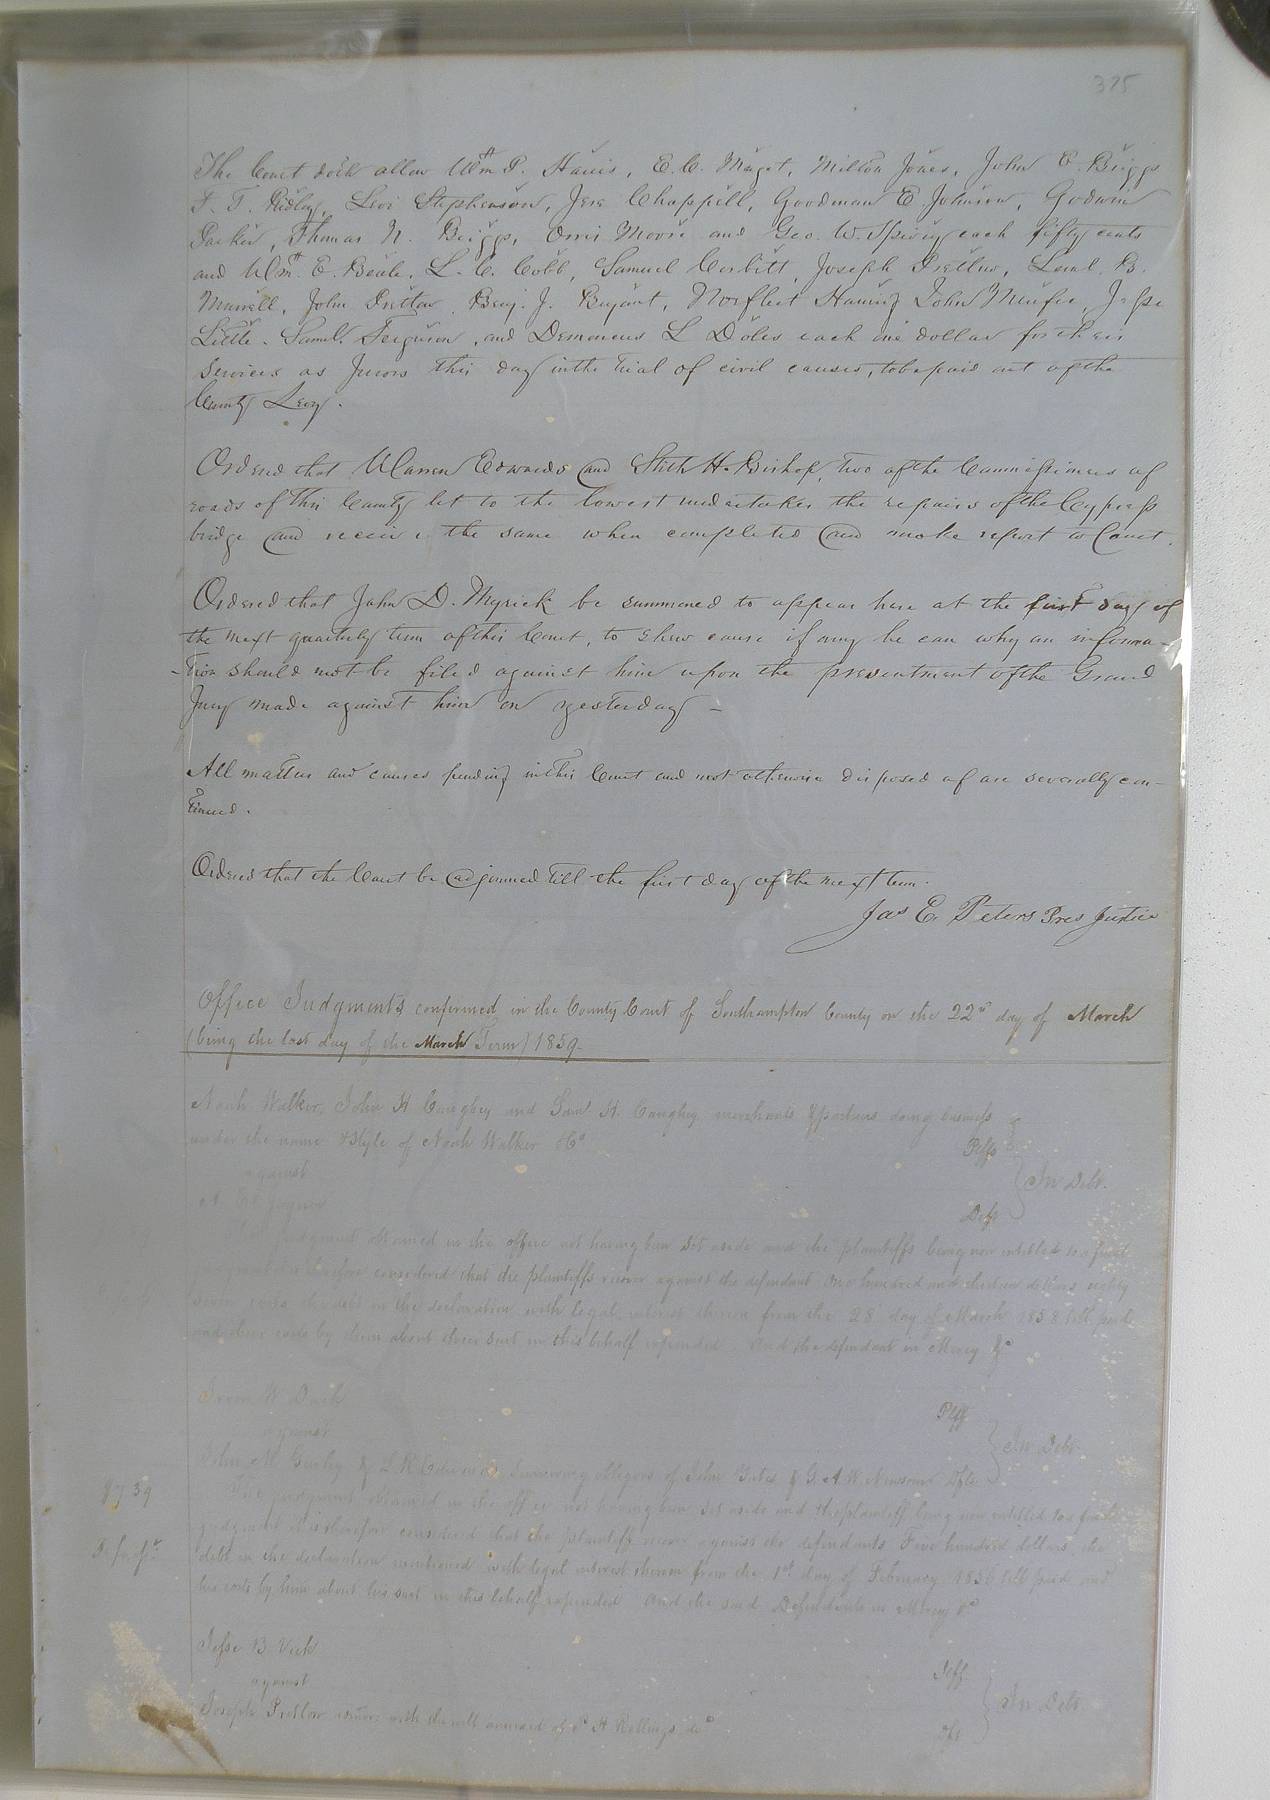 375
The Court doth allow Wm P. Harris, E. C. Maget, Milton Jones, John E. Briggs
F. T. Ridley, Levi Stephenson, Jere Chappell, Goodman E Johnson, Godwin
Parker, Thomas N. Briggs, Orris Moore and Geo. W. Spivey each fifty cents
and Wm. E. Beale, L. C. Cobb, Samuel Corbitt, Joseph Pretlow, Leml. B.
John Pretlow, Benj. J. Bryant, Norfleet John Jesse
Little, Saml. Ferguson, and L Doles each one dollar for their
Services as Jurors this day in the Trial of civil causes, to be paid out of the
County Levy.
Ordered that Warren Edwards and Stith H. Bishop, two of the Commissioners of
roads of this County let to the lowest undertaker the repairs of the Cypress
bridge and receive the same when completed and make report to Court.
Ordered that John D. Myrick be summoned to appear here at the first day of
the next quarterly term of this Court, to shew cause if any he can why an informa-
-tion should not be filed against him upon the presentment of the Grand
Jury made against him on yesterday –
All matters and causes pending in this Court and not otherwise disposed of are severally con-
tinued.
Ordered that the Court be adjourned till the first day of the next term.
Jas E. Peters Pres Justice
Office Judgments confirmed in the County Court of Southampton County on the 22d day of March
(being the last day of the March Term) 1859–
Noah Walker, John H Caughey and Saml H. Caughey merchants & partners doing business
under the name & style of Noah Walker & Co Plffs
against In Debt.
Deft
judgment obtained in the office not having been set aside and the plaintiffs being now entitled to a final
judgment it is therefore considered that the plaintiffs recover against the defendant one hundred and thirteen dollars eighty
seven cents the debt in the declaration with legal interest thereon from the 28 day of March 1858 till paid
and their costs by them about their suit in this behalf expended. And the defendant in Mercy &c
Plff
against In Debt
John M. Gurley & L R Edwards Surviving obligors of John & G. A. W. Newsom Dfts
The judgment obtained in the office not having been set aside and the plaintiff being now entitled to a final
judgment it is therefore considered that the plaintiff recover against the defendants Five hundred dollars, the
debt in the declaration mentioned with legal interest thereon from the 1st day of February till paid and
his costs by him about his suit in this behalf expended And the said Defendants in Mercy &c
Jesse B. Vick Plff
against In Debt
Joseph Pretlow with the will annexed of H Rollings decd Dft